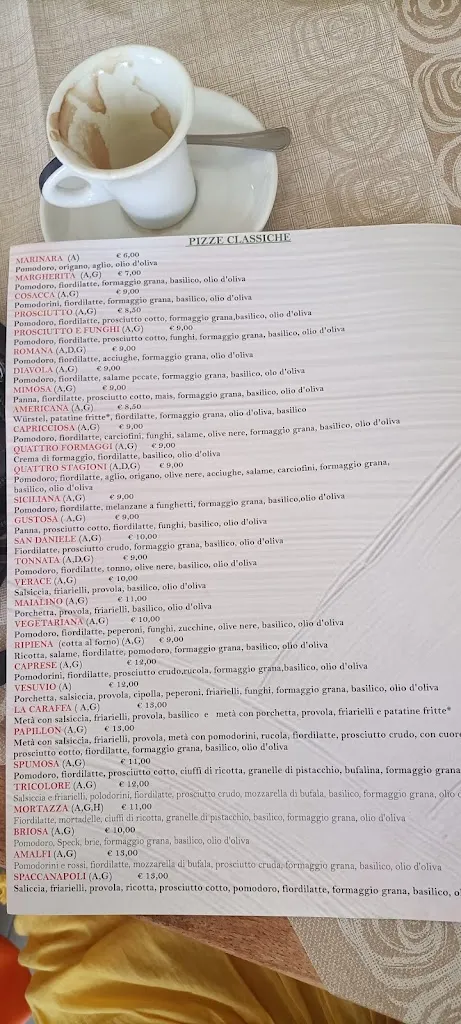 PIZZE CLASSICHE
MARINARA (A) € 6,00
Pomodoro, origano, aglio, olio d'oliva
MARGHERITA (A,G) € 7,00
Pomodoro, fiordilatte, formaggio grana, basilico, olio d'oliva
COSACCA (A,G) € 9,00
Pomodorini, fiordilatte, formaggio grana, basilico, olio d'oliva
PROSCIUTTO (A,G) € 8,50
Pomodoro, fiordilatte, prosciutto cotto, formaggio grana,basilico, olio d'oliva
PROSCIUTTO E FUNGHI (A,G) € 9,00
Pomodoro, fiordilatte, prosciutto cotto, funghi, formaggio grana, basilico, olio d'oliva
ROMANA (A,D,G) € 9,00
Pomodoro, fiordilatte, acciughe, formaggio grana, olio d'oliva
DIAVOLA (A,G) € 9,00
Pomodoro, fiordilatte, salame pccate, formaggio grana, basilico, olo d'oliva
MIMOSA (A,G) € 9,00
Panna, fiordilatte, prosciutto cotto, mais, formaggio grana, basilico, olio d'oliva
AMERICANA (A,G) € 8,50
Würstel, patatine fritte*, fiordilatte, formaggio grana, olio d'oliva, basilico
CAPRICCIOSA (A,G) € 9,00
Pomodoro, fiordilatte, carciofini, funghi, salame, olive nere, formaggio grana, basilico, olio d'oliva
QUATTRO FORMAGGI (A,G) € 9,00
Crema di formaggio, fiordilatte, basilico, olio d'oliva
QUATTRO STAGIONI (A,D,G) € 9,00
Pomodoro, fiordilatte, aglio, origano, olive nere, acciughe, salame, carciofini, formaggio grana,
basilico, olio d'oliva
SICILIANA (A,G) € 9,00
Pomodoro, fiordilatte, melanzane a funghetti, formaggio grana, basilico,olio d'oliva
GUSTOSA (A,G) € 9,00
Panna, prosciutto cotto, fiordilatte, funghi, basilico, olio d'oliva
SAN DANIELE (A,G) € 10,00
Fiordilatte, prosciutto crudo, formaggio grana, basilico, olio d'oliva
TONNATA (A,D,G) € 9,00
Pomodoro, fiordilatte, tonno, olive nere, basilico, olio d'oliva
VERACE (A,G) € 10,00
Salsiccia, friarielli, provola, basilico, olio d'oliva
MAIALINO (A,G) € 11,00
Porchetta, provola, friarielli, basilico, olio d'oliva
VEGETARIANA (A,G) € 10,00
Pomodoro, fiordilatte, peperoni, funghi, zucchine, olive nere, basilico, olio d'oliva
RIPIENA (cotta al forno) (A,G) € 9,00
Ricotta, salame, fiordilatte, pomodoro, formaggio grana, basilico, olio d'oliva
CAPRESE (A,G) € 12,00
Pomodorini, fiordilatte, prosciutto crudo,rucola, formaggio grana,basilico, olio d'oliva
VESUVIO (A) € 12,00
Porchetta, salsiccia, provola, cipolla, peperoni, friarielli, funghi, formaggio grana, basilico, olio d'oliva
LA CARAFFA ( A,G) € 13,00
Metà con salsiccia, friarielli, provola, basilico e metà con porchetta, provola, friarielli e patatine fritte*
PAPILLON (A,G) € 13,00
Metà con salsiccia, friarielli, provola, metà con pomodorini, rucola, fiordilatte, prosciutto crudo, con cuore
prosciutto cotto, fiordilatte, formaggio grana, basilico, olio d'oliva
SPUMOSA (A,G) € 11,00
Pomodoro, fiordilatte, prosciutto cotto, ciuffi di ricotta, granelle di pistacchio, bufalina, formaggio grana
TRICOLORE (A,G) € 12,00
Salsiccia e friarielli, polodorini, fiordilatte, prosciutto crudo, mozzarella di bufala, basilico, formaggio grana, olio
MORTAZZA (A,G,H) € 11,00
Fiordilatte, mortadelle, ciuffi di ricotta, granelle di pistacchio, basilico, formaggio grana, olio d'oliva
BRIOSA (A,G) € 10,00
Pomodoro, Speck, brie, formaggio grana, basilico, olio d'oliva
AMALFI (A,G) € 13,00
Pomodorini e rossi, fiordilatte, mozzarella di bufala, prosciutto crudo, formaggio grana, basilico, olio d'oliva
SPACCANAPOLI (A,G) € 13,00
Saliccia, friarielli, provola, ricotta, prosciutto cotto, pomodoro, fiordilatte, formaggio grana, basilico,